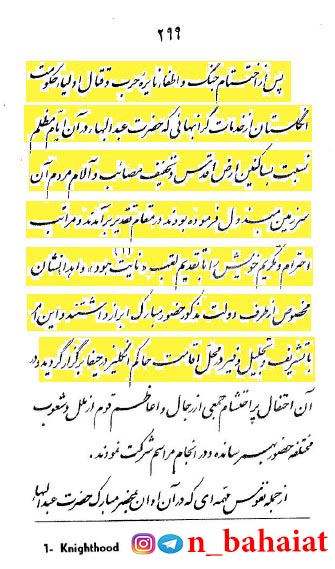 ۲۹۹
پس از اختتام جنگ و اطفاء نایرهٔ حرب و قتال اولیاء حکومت
انگلستان از خدمات گرانبهائی که حضرت عبدالبهاء در آن ایام مظلم
نسبت بساکنین ارض اقدس و تخفیف مصائب و آلام مردم آن
سرزمین مبذول فرموده بودند در مقام تقدیر برآمدند و مراتب
احترام و تکریم خویش را با تقدیم لقب «نایت هود» (۱) و اهداء نشان
مخصوص از طرف دولت مذکور حضور مبارک ابراز داشتند و این امر
با تشریف و تجلیل وفیر در محل اقامت حاکم انگلیز در حیفا برگزار گردید و در
آن احتفال پر احتشام جمعی از رجال و اعاظم قوم از ملل و شعوب
مختلفه حضور بهم رسانده و در انجام مراسم شرکت نمودند.
از جمله نفوس مهمه‌ای که در آن اوان بمحضر مبارک حضرت عبدالبهاء
1- Knighthood
n_bahaiat